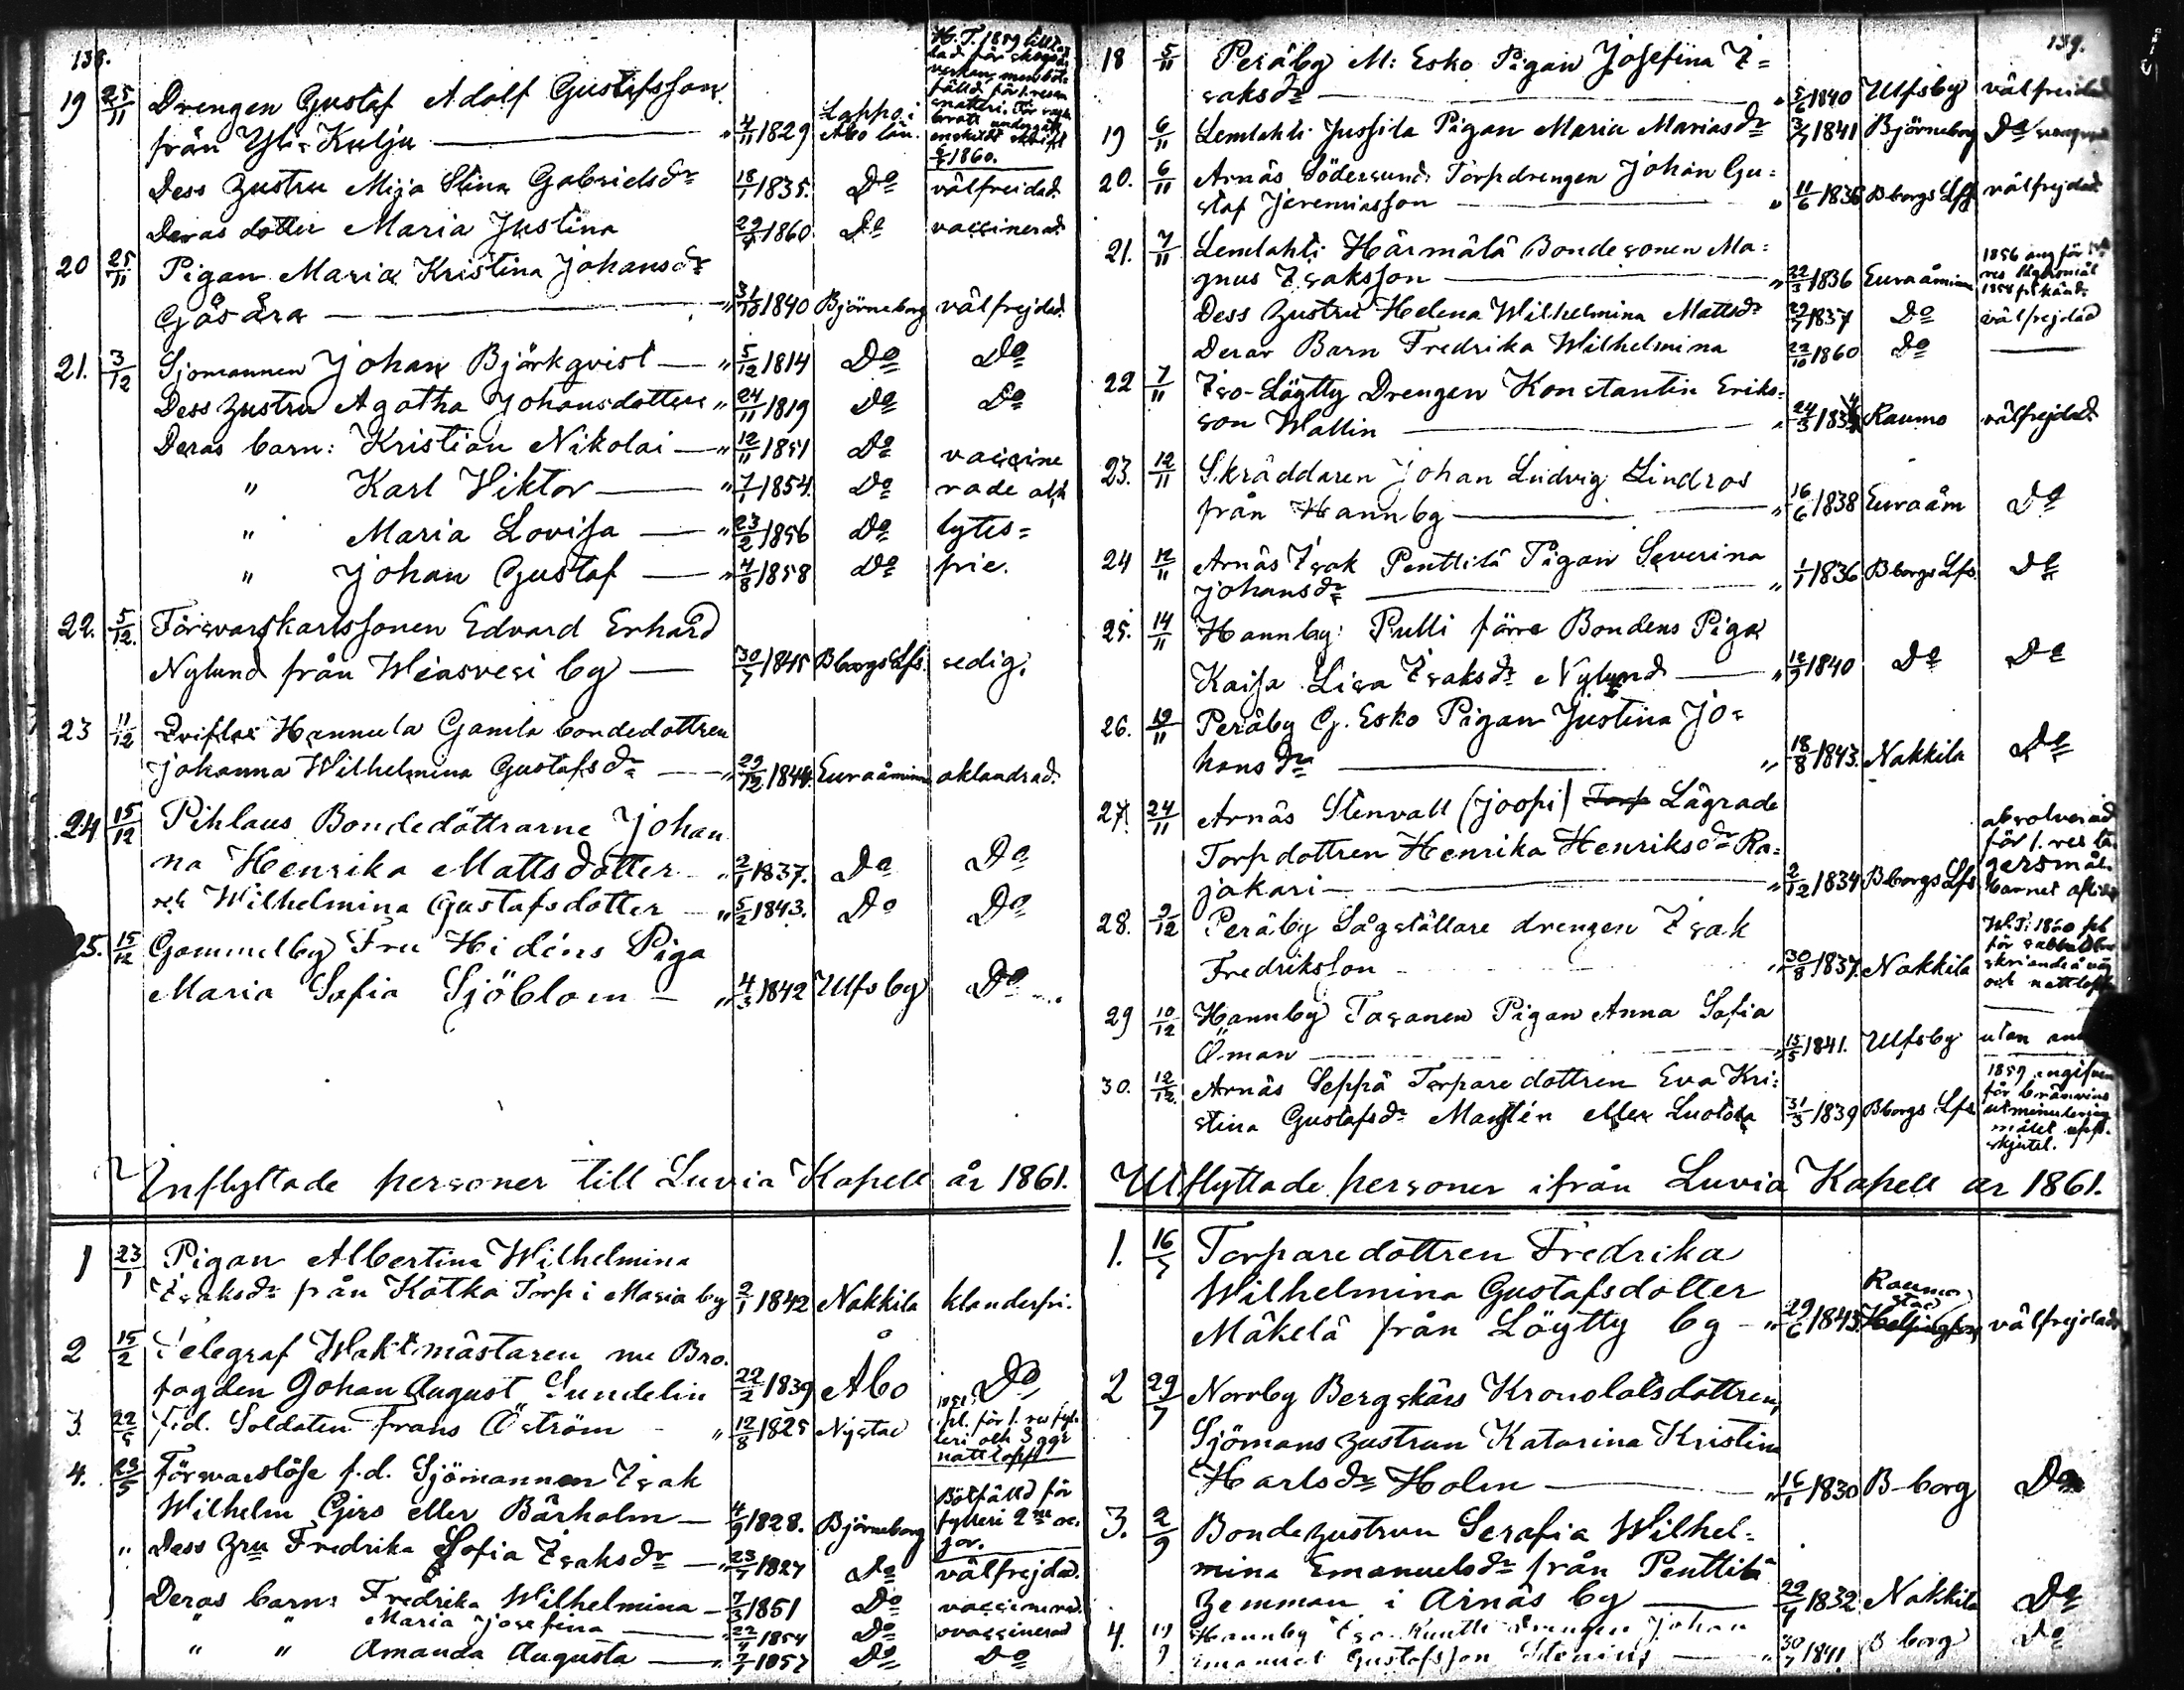 138.
19 25/11 Drengen Gustaf Adolf Gustafsson
från Yli-Kulju — " 4/11 1829 Lappo i Åbo län. H. T. 1859 för men 1860.
Dess hustru Maja Stina Gabrielsdr 18/1 1835. Do välfreidad.
Deras dotter Maria Justina 1860 Do vaccinerad.
20 25/11 Pigan Maria Kristina Johansdr
Gåsåra — " 31/10 1840 Björneborg välfrejdad.
21. 3/12 Sjömannen Johan Björkqvist — " 5/12 1814 Do Do
Dess hustru Agatha Johansdotter " 24/11 1819 Do Do
Deras barn: Kristian Nikolai — " 12/11 1851 Do vaccine
" Karl Viktor — " 7/1 1854 Do rade och
" Maria Lovisa — " 23/2 1856 Do lytes=
" Johan Gustaf — " 4/8 1858 Do frie.
22. 5/12 Försvarskarlssonen Edvard Erhard
Nylund från Wiasvesi by — 1845 Bborgs Lfs. sedig.
23 11/12 Hannula Gamla bondedottren
Johanna Wilhelmina Gustafsdr — " 29/12 1844. Euraåminne oklandrad.
24 15/12 Pihlaus Bondedöttrarne Johan
na Henrika Mattsdotter " 2/1 1837. Do Do
och Wilhelmina Gustafsdotter — " 5/2 1843. Do Do
25. 15/12 Gammelby Fru Hidéns Piga
Maria Sofia Sjöblom — " 4/3 1842 Ulfsby Do
Inflyttade personer till Luvia Kapell år 1861.
1 23/1 Pigan Albertina Wilhelmina
Isaksdr från Katka Torp i Maria by 2/1 1842 Nakkila klanderfri.
2 15/2 Telegraf Waktmästaren nu Bro
fogden Johan August Sundelin 22/2 1839 Åbo Do
3. f.d. Soldaten Frans Öström " 12/8 1825 Nystad för 1. res fyl-
leri och 3 ggr
nattlopp
4. 23/5 Försvarslöse f.d. Sjömannen Isak
Wilhelm Girs eller Bärholm — 4/9 1828. Björneborg Bötfälld för
fylleri 2ne
" Dess Hru Fredrika Sofia Isaksdr — " 1827 Do välfrejdad.
Deras barn: Fredrika Wilhelmina — 7/3 1851 Do vaccinerad.
" " Maria Josefina — 1854 Do ovaccinerad
" " Amanda Augusta — 1857 Do Do
139.
18 5/11 Peräby M: Esko Pigan Josefina I=
saksdr — " 5/6 1840 Ulfsby välfreidad
19 6/11 Lemlahti Jussila Pigan Maria Mariasdr 1841 Björneborg Do
20. 6/11 Arnäs Södersund Torpdrengen Johan Gu=
staf Jeremiasson — " 11/6 1836 Bborgs Lfs välfrejdad
21. 7/11 Lemlahti Härmälä Bondesonen Ma=
gnus Isaksson — " 22/3 1836 Euraåminne 1856 ang för
res lägersmål
Dess hustru Helena Wilhelmina Mattsdr 1837 Do välfrejdad
Deras Barn Fredrika Wilhelmina 22/10 1860 Do —
22 7/11 Iso-Löytty Drengen Konstantin Eriks=
son Wallin — " 24/3 Raumo välfrejdad
23. 12/11 Skräddaren Johan Ludvig Lindros
från Hannby — " 16/6 1838 Euraåm Do
24 12/11 Arnäs Isak Penttilä Pigan Severina
Johansdr — " 1/1 1836 Bborgs Lfs. Do
25. 14/11 Hannby Pulli förre Bondens Piga
Kaisa Lisa Isaksdr Nylund — " 12/9 1840 Do Do
26. 19/11 Peräby G. Esko Pigan Justina Jo=
hansdr — " 18/8 1843. Nakkila Do
27. 24/11 Arnäs Stenvall (Joopi) Lägrade
Torpdottren Henrika Henriksdr Ra=
jakari — " 2/12 1834 Bborgs Lfs absolverad
för 1. res lä
gersmål.
barnet
28. 9/12 Peräby Sågställare drengen Isak
Fredriksson " 30/8 1837. Nakkila W.T. 1860
för
skriande å väg
och nattlopp
29 10/12 Hannby Tasanen Pigan Anna Sofia
Öman — " 15/5 1841. Ulfsby utan
30. 12/12 Arnäs Seppä Torparedottren Eva Kri=
stina Gustafsdr eller 31/3 1839 Bborgs Lfs 1859 angifven
för bränvins
utminutering
målet upp-
skjutet.
Utflyttade personer ifrån Luvia Kapell år 1861.
1. 16/ Torparedottren Fredrika
Wilhelmina Gustafsdotter
Mäkelä från Löytty by — " 29/6 1845 Raumo stad välfrejdad
2 29/7 Norrby Bergskärs Kronolotsdottren,
Sjömans hustrun Katarina Kristina
Karlsdr Holm — " 16/1 1830 B-borg Do
3. 2/9 Bondehustrun Serafia Wilhel=
mina Emanuelsdr från Penttilä
hemman i Arnäs by — 1832 Nakkila Do
4. Hannby Iso Drengen Johan
Emanuel Gustafsson Stenius — " 30/ 1841 B borg Do